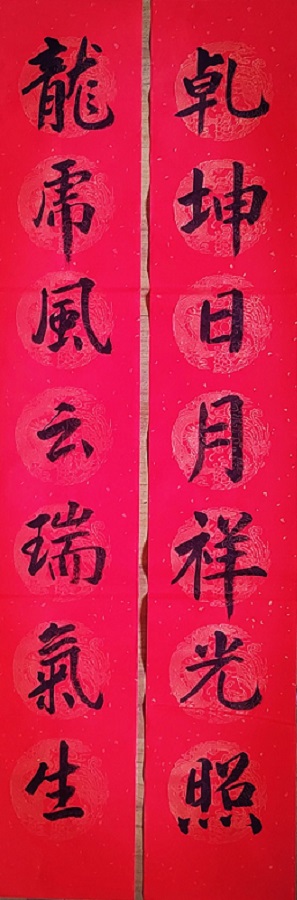 乾坤日月祥光照
龍虎風云瑞氣生